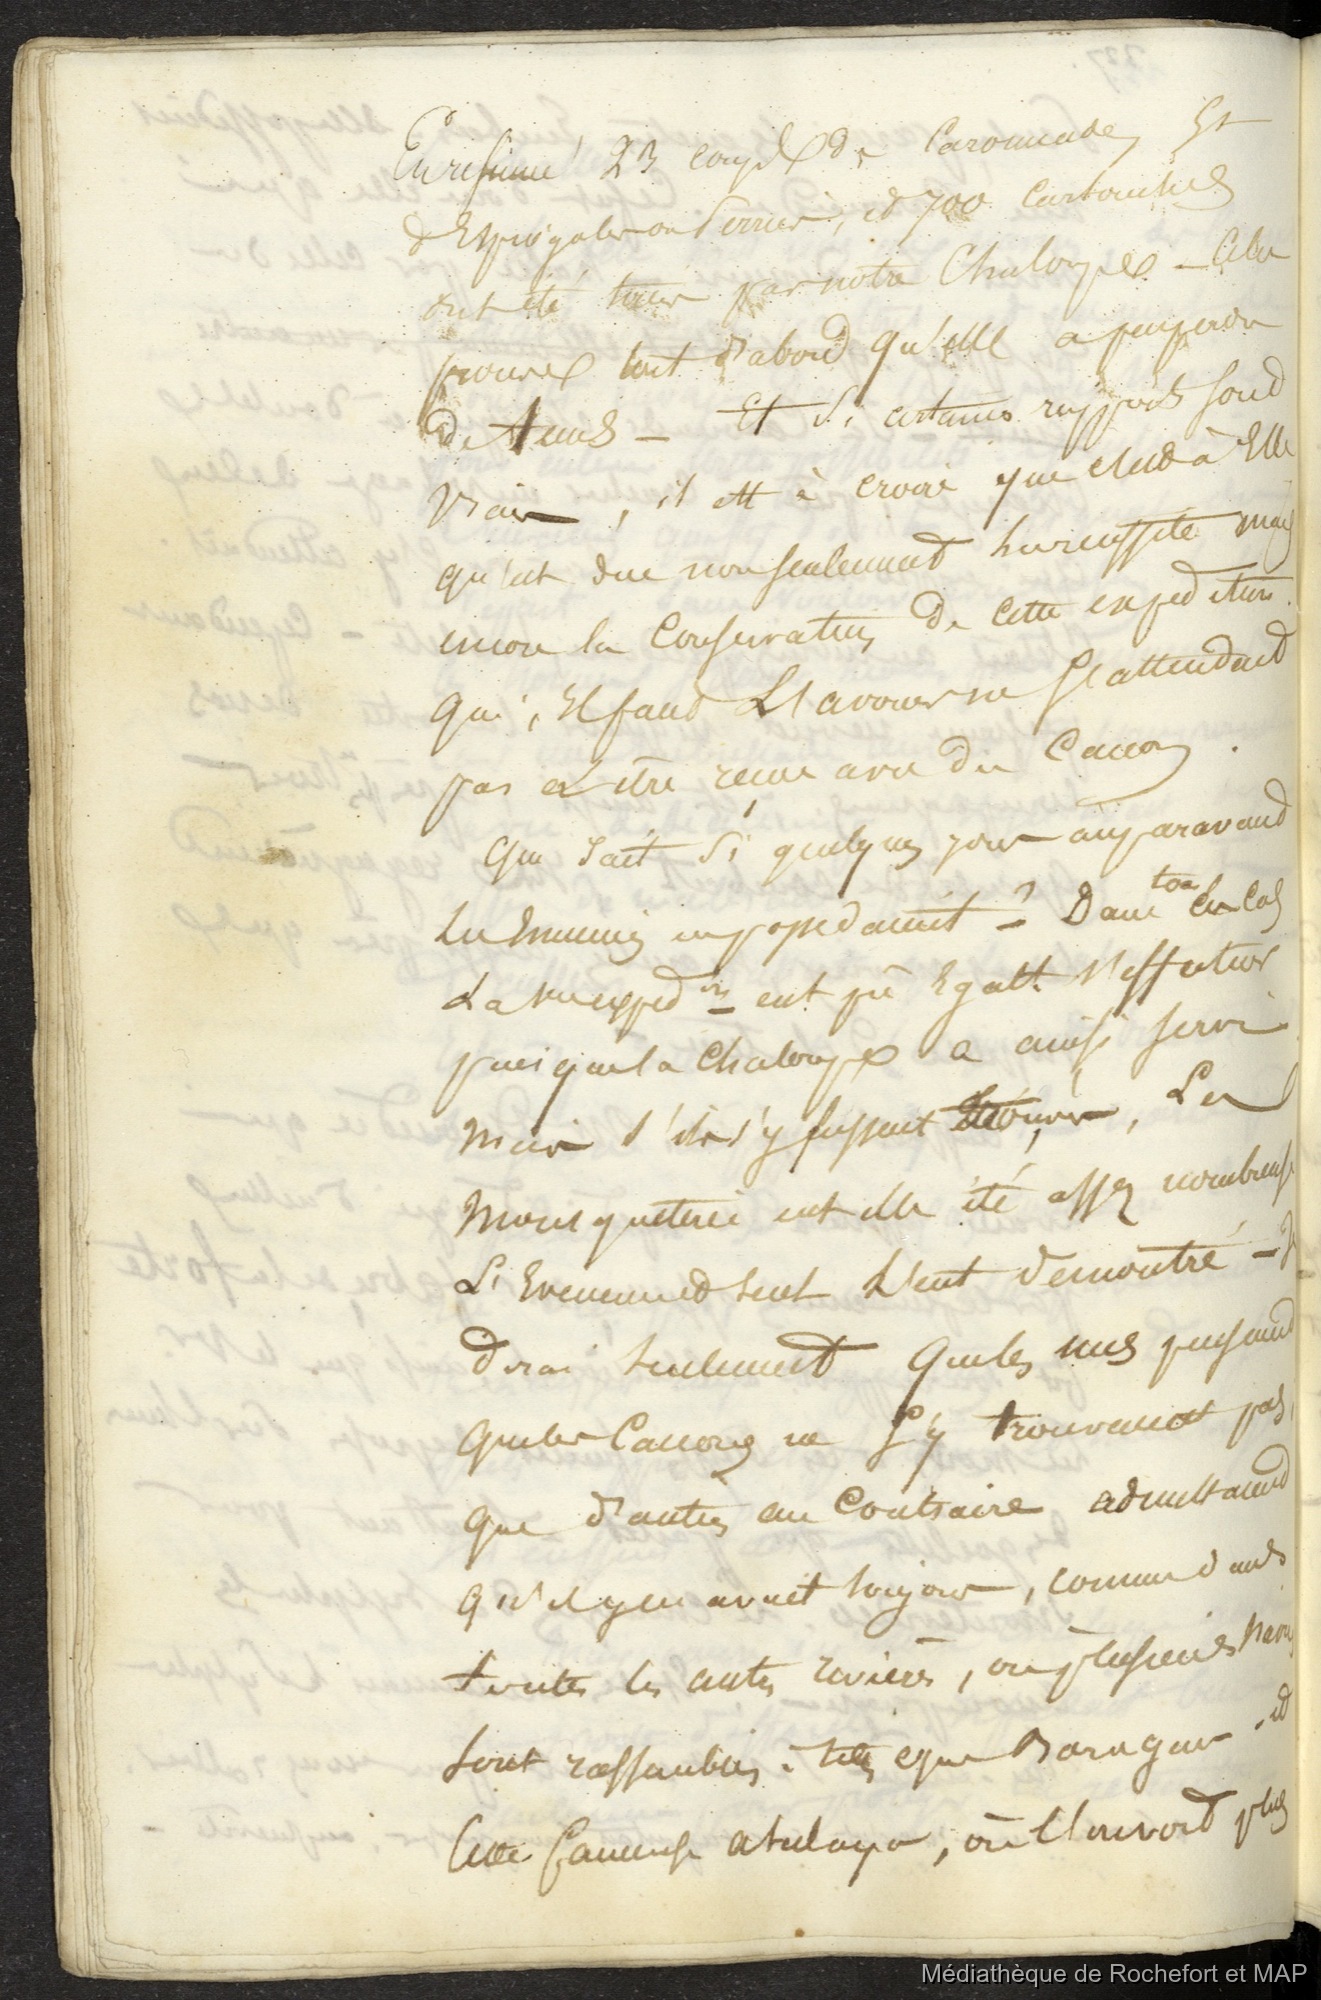 En résumé 23 coups de Caronnade, Et
d'Espingoles ou Perrier, et 700 Cartouches
ont été tirées par notre Chaloupe - Cela
prouve tout d'abord qu'elle a peu perdu
de tems - Et Si certains rapports sond
vrais, il est à croire que c'est à Elle
qu'est due non seulement la reussite mais
encore la Conservation de cette expedition
qui, Il faud L'avouer ne S'attendaid
pas à être reçue avec du Canon.
Qui sait Si quelques jours auparavand
les Ennemis en possedaient ? Dans tou les Cas
La exped.on eut pû Egalt. s'effectuer
puisque la Chaloupe a ainsi servi
Mais s'ils s'y fussent trouvés, La
Mousqueterie eut elle été assez nombreuse
L'Evenement seul L'eut demontré - Je
dirai seulement que les uns pensaient
que les Canons ne S'y trouvaient pas,
que d'autres au Contraire admettaient
qu'il y en avait toujours, comme dans
toutes les autres rivières, où plusieurs
sont rassemblés. tels que . et
Cette fameuse , où l'on voit plus
Médiathèque de Rochefort et MAP